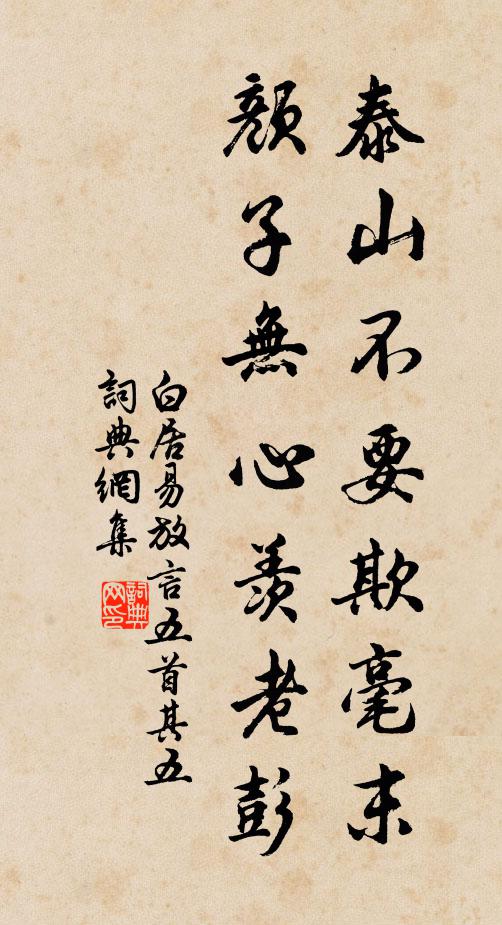 泰山不要欺毫末
顏子無心羨老彭
白居易放言五首其五
詞典網集
詞典网印